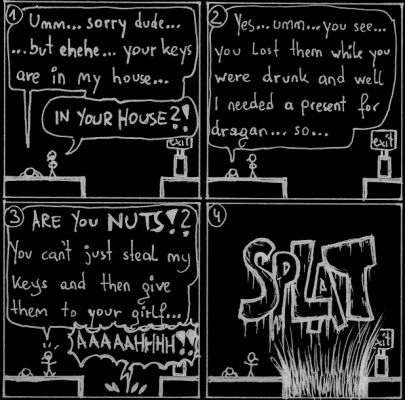 1
Umm... sorry dude...
...but ehehe... your keys
are in my house...
IN YOUR HOUSE?!
exit
2
Yes... umm... you see...
you lost them while you
were drunk and well
I needed a present for
dragan... so...
exit
3
ARE YOU NUTS!?
You can't just steal my
keys and then give
them to your girlf...
AAAAAHHHH!!
4
SPLAT
exit